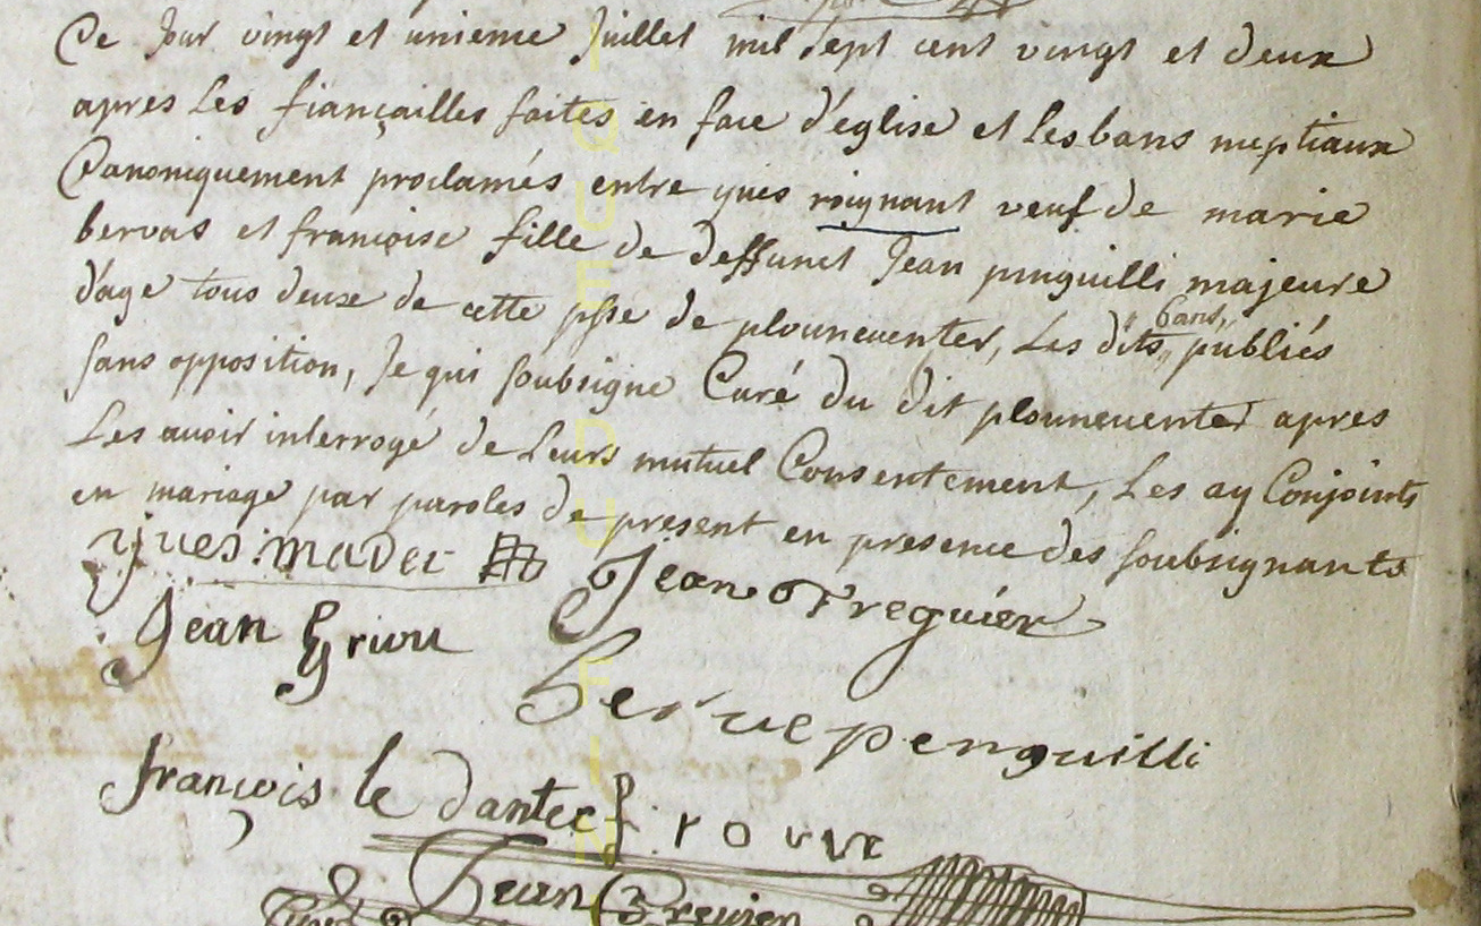 Ce Jour vingt et unieme Juillet mil sept cent vingt et deux
apres les fiançailles faites en face d'église et les bans nuptiaux
Canoniquement proclamés entre yves roignant veuf de marie
bervas et françoise fille de deffunct Jean pinguilli majeure
d'age tous deux de cette psse de plouneventer, Les dits publiés
"bans"
sans opposition, Je qui soubsigne Curé du dit plouneventer apres
Les avoir interrogé de Leurs mutuel Consentement, Les ay Conjoints
en mariage par paroles de present en presence des soubsignants
yves madec Jean Treguier
Jean griou
herve penguilli
françois le dantec
Jean